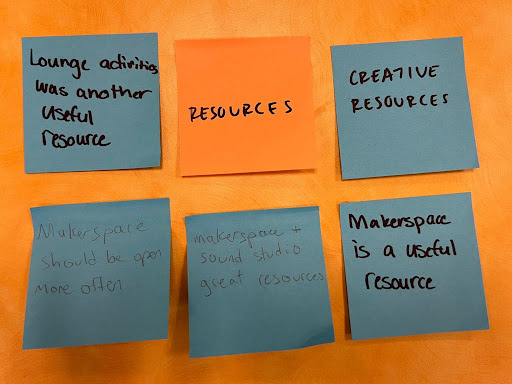 Lounge activities
was another
useful
resource
RESOURCES
CREATIVE
RESOURCES
Makerspace
should be open
more often
makerspace +
sound studio
great resources
Makerspace
is a useful
resource